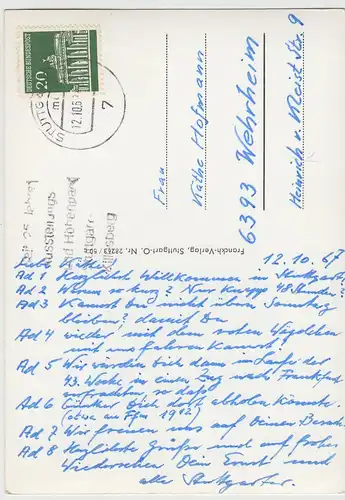 DEUTSCHE BUNDESPOST
20
STUTTGA
12.10.6
7
Seit 25 Jahren
Ausstellungs
und Höhenpark
Stuttgart-
Killesberg
Franckh-Verlag, Stuttgart-O, Nr.
Frau
Käthe Hofmann
6393 Wehrheim
Heinrich v. Kleist Str. 9
12.10.67
Liebe Käthe!
Ad 1 Herzlichst Willkommen in Stuttgart!
Ad 2 Warum so kurz? Nur knapp 48 Stunden?
Ad 3 Kannst Du nicht übern Sonntag
bleiben? damit Du
Ad 4 wieder mit dem roten Wägelchen
mit uns fahren kannst!
Ad 5 Wir werden Dich dann im Laufe der
43. Woche in einen Zug nach Frankfurt
verfrachten, so daß
Ad 6 Günther Dich dort abholen könnte.
(etwa an Ffm 1912)
Ad 7 Wir freuen uns auf Deinen Besuch.
Ad 8 Herzlichste Grüße und auf frohes
Wiedersehen Dein Ernst und
alle Stuttgarter.